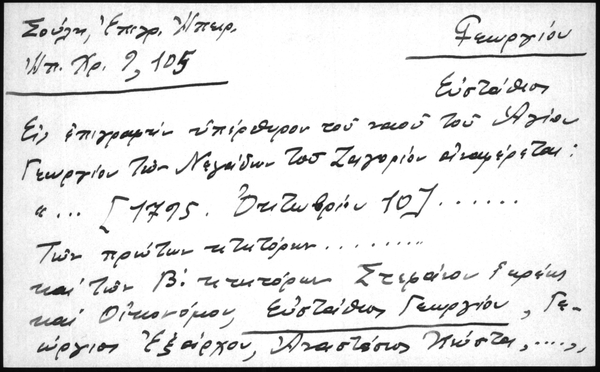 Σούλη, Ἐπιγρ. Ἠπειρ.
Ἠπ. Χρ. 9, 105
Γεωργίου
Εὐστάθιος
Εἰς ἐπιγραφὴν ὑπέρθυρον τοῦ ναοῦ τοῦ Ἁγίου
Γεωργίου τῶν Νεγάδων τοῦ Ζαγορίου ἀναφέρεται:
"... [1795. Ὀκτωβρίου 10] ......
Τῶν πρώτων κτιτόρων ........
καὶ τῶν Β΄. κτιτόρων Στεφάνου
καὶ Οἰκονόμου, Εὐστάθιος Γεωργίου, Γε-
ώργιος Ἐξάρχου, Ἀναστάσιος Κιώστα, ....,